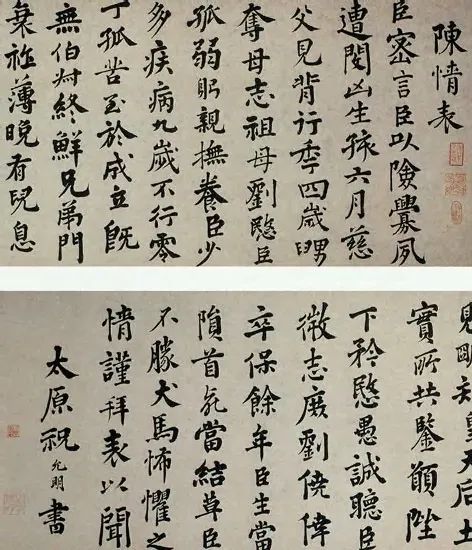 陳情表
臣密言臣以險釁夙
遭閔凶生孩六月慈
父見背行年四歲舅
奪母志祖母劉愍臣
孤弱躬親撫養臣少
多疾病九歲不行零
丁孤苦至於成立既
無伯叔終鮮兄弟門
衰祚薄晚有兒息
明知皇天后土
實所共鑒願陛
下矜愍愚誠聽臣
微志庶劉僥倖
卒保餘年臣生當
隕首死當結草臣
不勝犬馬怖懼之
情謹拜表以聞
太原祝允明書